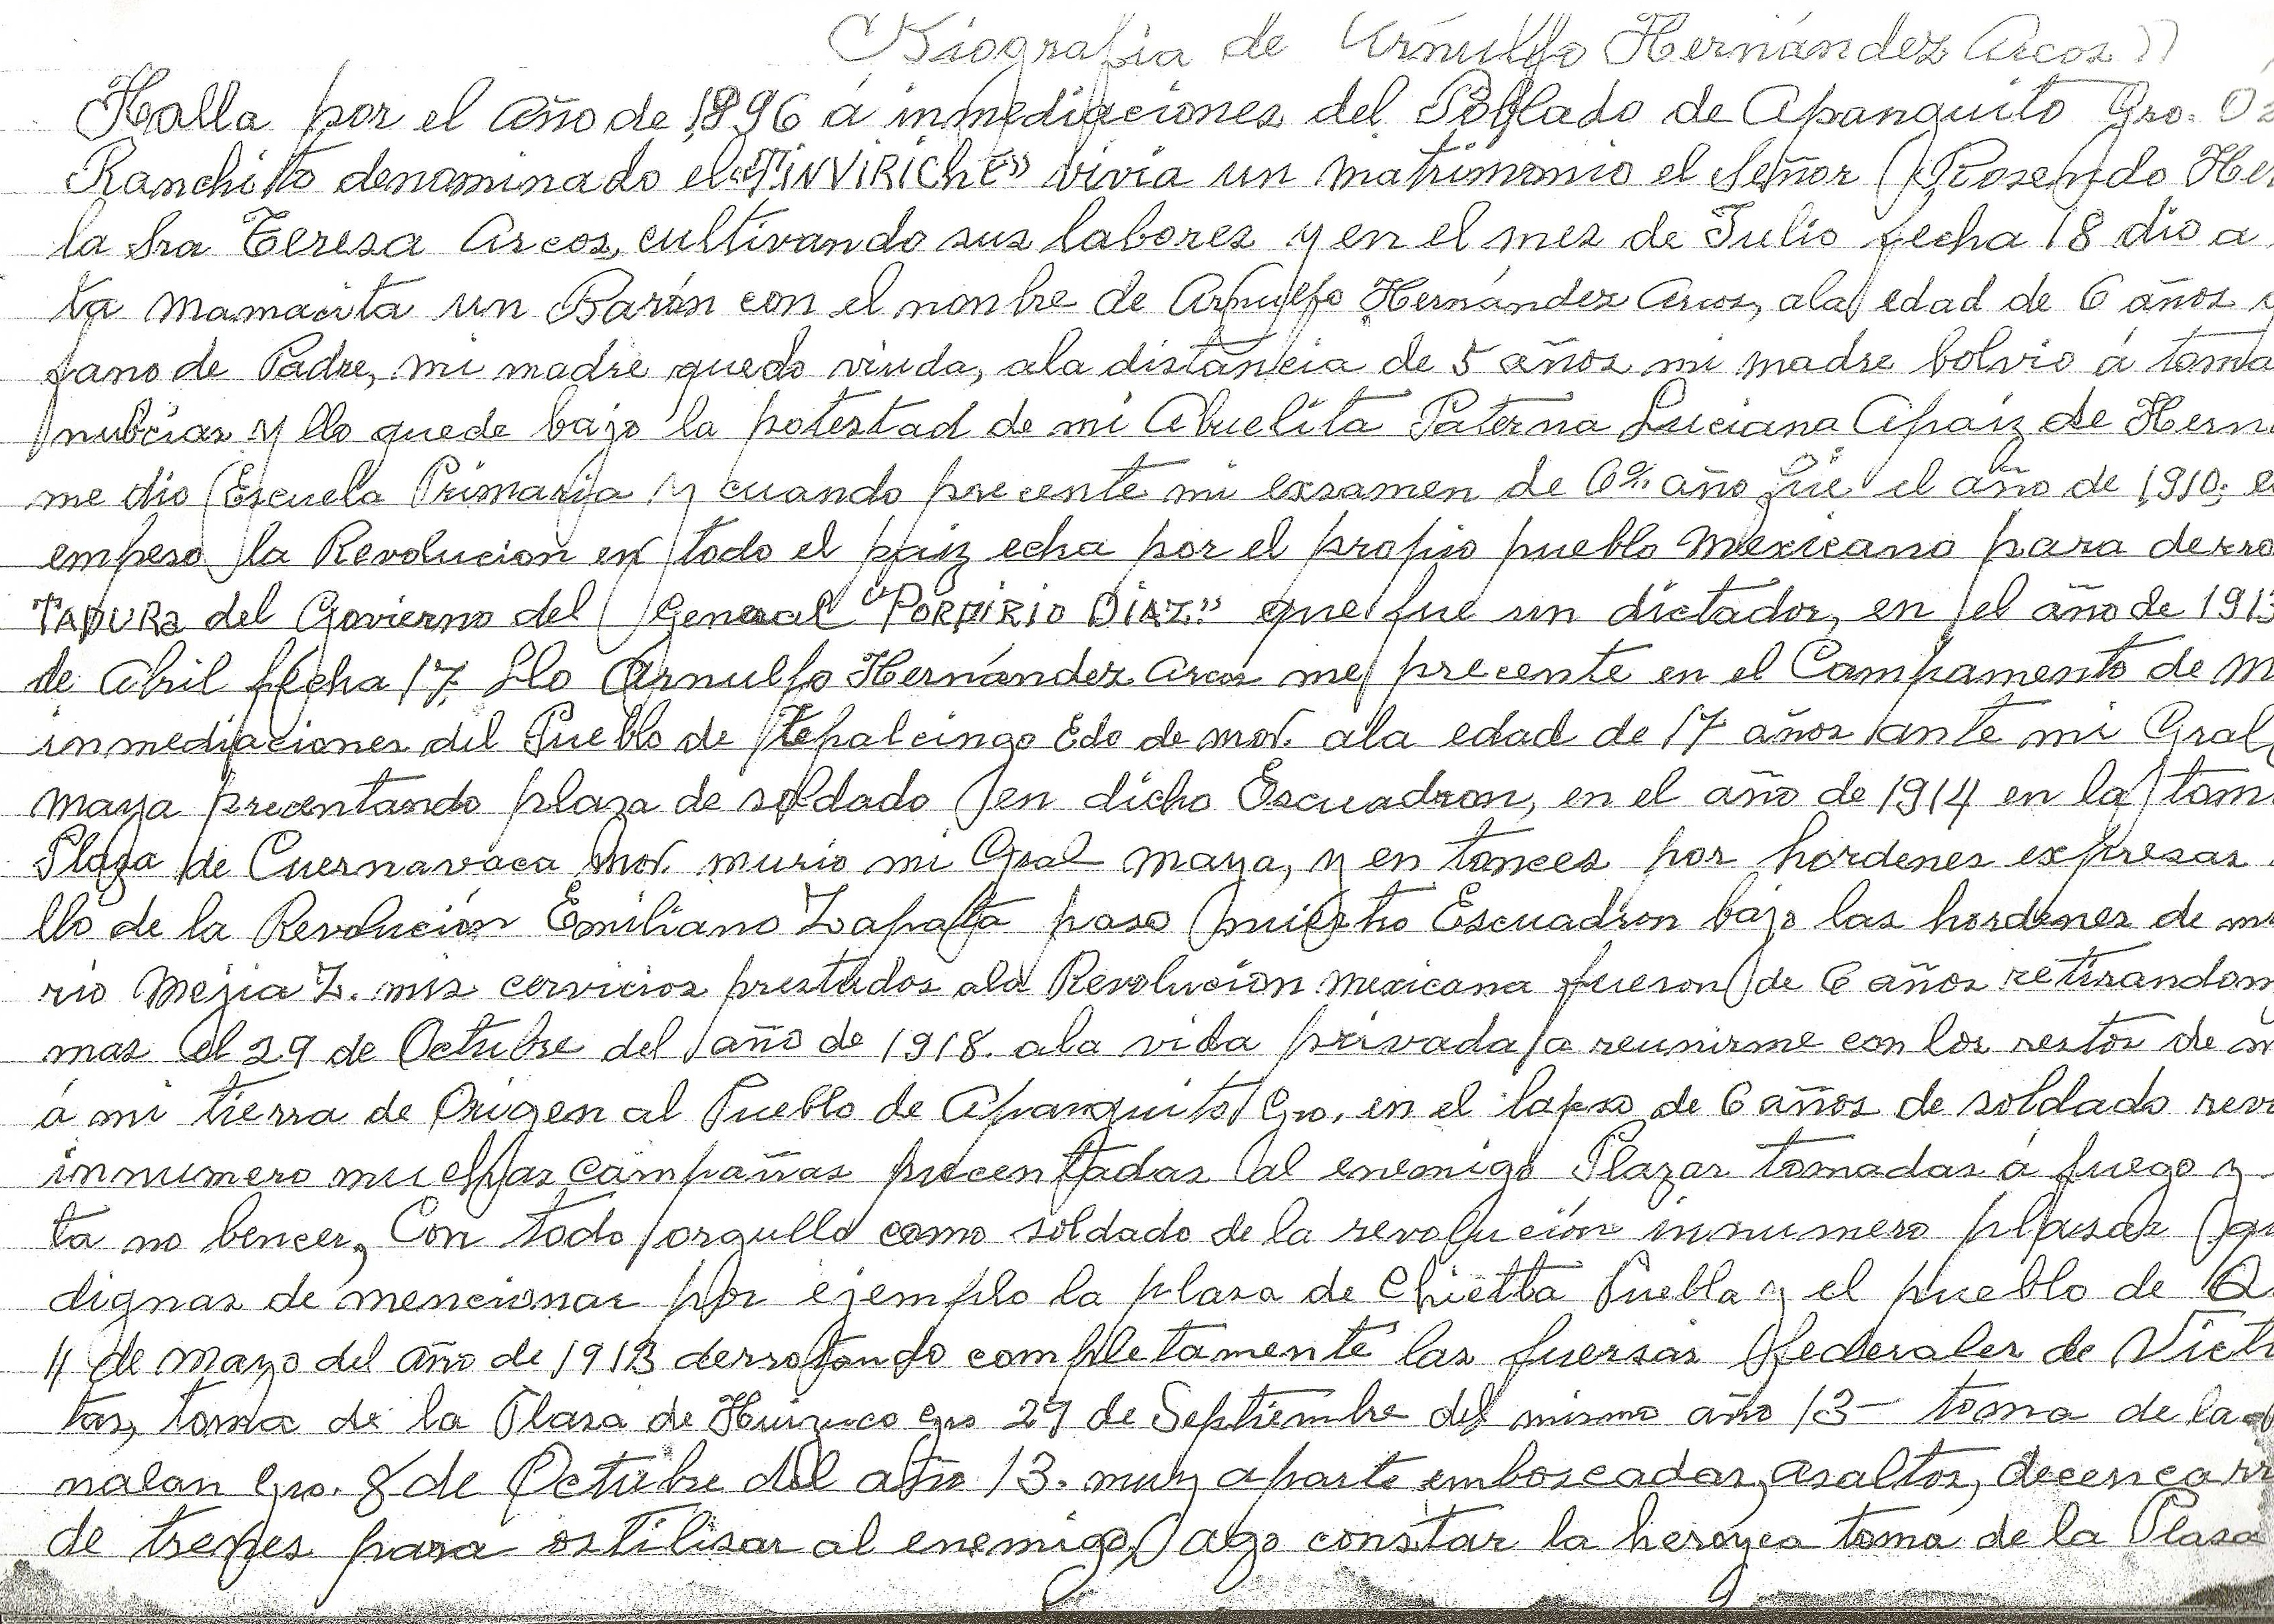 Biografia de Arnulfo Hernández Arcos"
Halla por el año de 1896 á inmediaciones del Poblado de Apanguito Gro.
Ranchito denominado el "TiNViRiChE" vivia un matrimonio el Señor Rosendo He
la Sra Teresa Arcos, cultivando sus labores y en el mes de Julio fecha 18 dio a
ta mamacita un Barón con el nonbre de Arnulfo Hernández Arcos, ala edad de 6 años
fano de Padre, mi madre quedo viuda, ala distancia de 5 años mi madre bolvio á toma
nubcias y llo quede bajo la potestad de mi Abuelita Paterna Luciana Apaiz de Hern
me dio Escuela Primaria y cuando precente mi exsamen de 6º. año fue el año de 1910; e
empeso la Revolucion en todo el paiz echa por el propio pueblo Mexicano para derro
TADURA del Govierno del General "PORFIRIO DIAZ" que fue un dictador, en el año de 1913
de Abril fecha 17 Llo Arnulfo Hernández Arcos me precente en el Campamento de M
inmediaciones del Pueblo de Tepalcingo Edo de Mor. ala edad de 17 años ante mi Gral
Maya precentando plaza de soldado en dicho Escuadron, en el año de 1914 en la tom
Plaza de Cuernavaca Mor. murio mi Gral Maya, y en tonces por hordenes expresas
llo de la Revolución Emiliano Zapata paso nuestro Escuadron bajo las hordenes de m
rio Mejia Z. mis cervicios prestados ala Revolucion Mexicana fueron de 6 años retirandom
mas el 29 de Octubre del año de 1918. ala vida privada a reunirme con los restos de m
á mi tierra de Origen al Pueblo de Apanguito Gro. en el lapso de 6 años de soldado rev
innumero muchas campañas precentadas al enemigo Plazas tomadas á fuego y
ta no bencer, Con todo orgullo como soldado de la revolución innumero plasas qu
dignas de mencionar por ejemplo la plasa de Chietla Puebla y el pueblo de
11 de Mayo del año de 1913 derrotando completamente las fuersas federales de Vict
tas, toma de la Plasa de Huizuco Gro 27 de Septiembre del mismo año 13- toma de la
nalan Gro. 8 de Octubre del año 13. muy aparte emboscadas, asaltos, decencarr
de trenes para ostilisar al enemigo, ago constar la heroyca toma de la Plasa